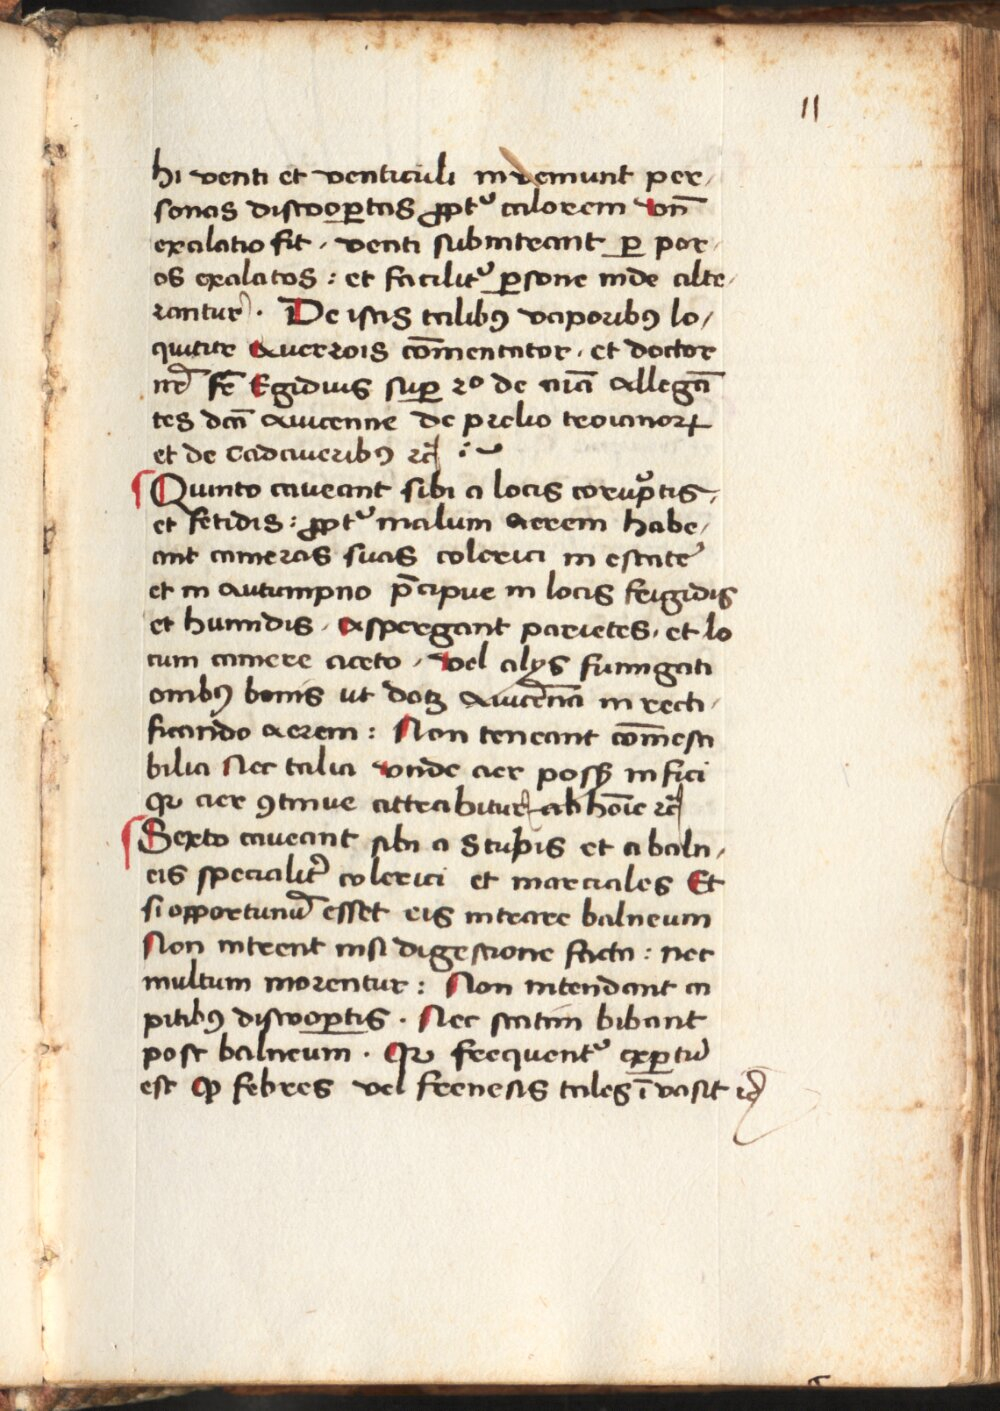 11
hi venti et venticuli invemunt per,
sonas discoꝑtas ꝓptᷣ calorem vn̄
exalatio fit, venti subintrant ꝑ por,
os exalatos: et facilitᷣ ꝑsone inde alte,
rantur. De istis talibꝫ vaporibꝫ lo,
quitur Auerrois com̄entator, et doctor
nr̄ fr̄ Egidius suꝑ 2º de aīa Allegā
tes dcm̄ Auicenne de prelio troianoꝝ
et de Cadaueribꝫ ⁊c̄
Quinto caueant sibi a locis coruptis,
et fetidis: ꝓptᷣ malum Aerem habe,
ant cameras suas colerici in estate
et in Autumpno p̄cipue in locis frigidis
et humidis, Aspergant parietes, et lo
cum camere aceto, vel alijs fumigati
onibꝫ bonis ut docꝫ Auicēna in recti,
ficando Aerem: Non teneant com̄esti
bilia Nec talia vnde aer possꝫ infici
Qꝛ aer ꝯtinue attrabitur ab hoīe ⁊c̄
Sexto caueant sibi a Stuphis et a baln,
eis specialitᷣ colerici et marciales Et
si opportunū esset eis intrare balneum
Non intrent nisi digestione facta: nec
multum morentur: Non intendant ca
pitibꝫ discoꝑtis. Nec statim bibant
post balneum. Qꝛ frequentᷣ exꝑtū
est ꝙ febres vel frenesis tales īvasit